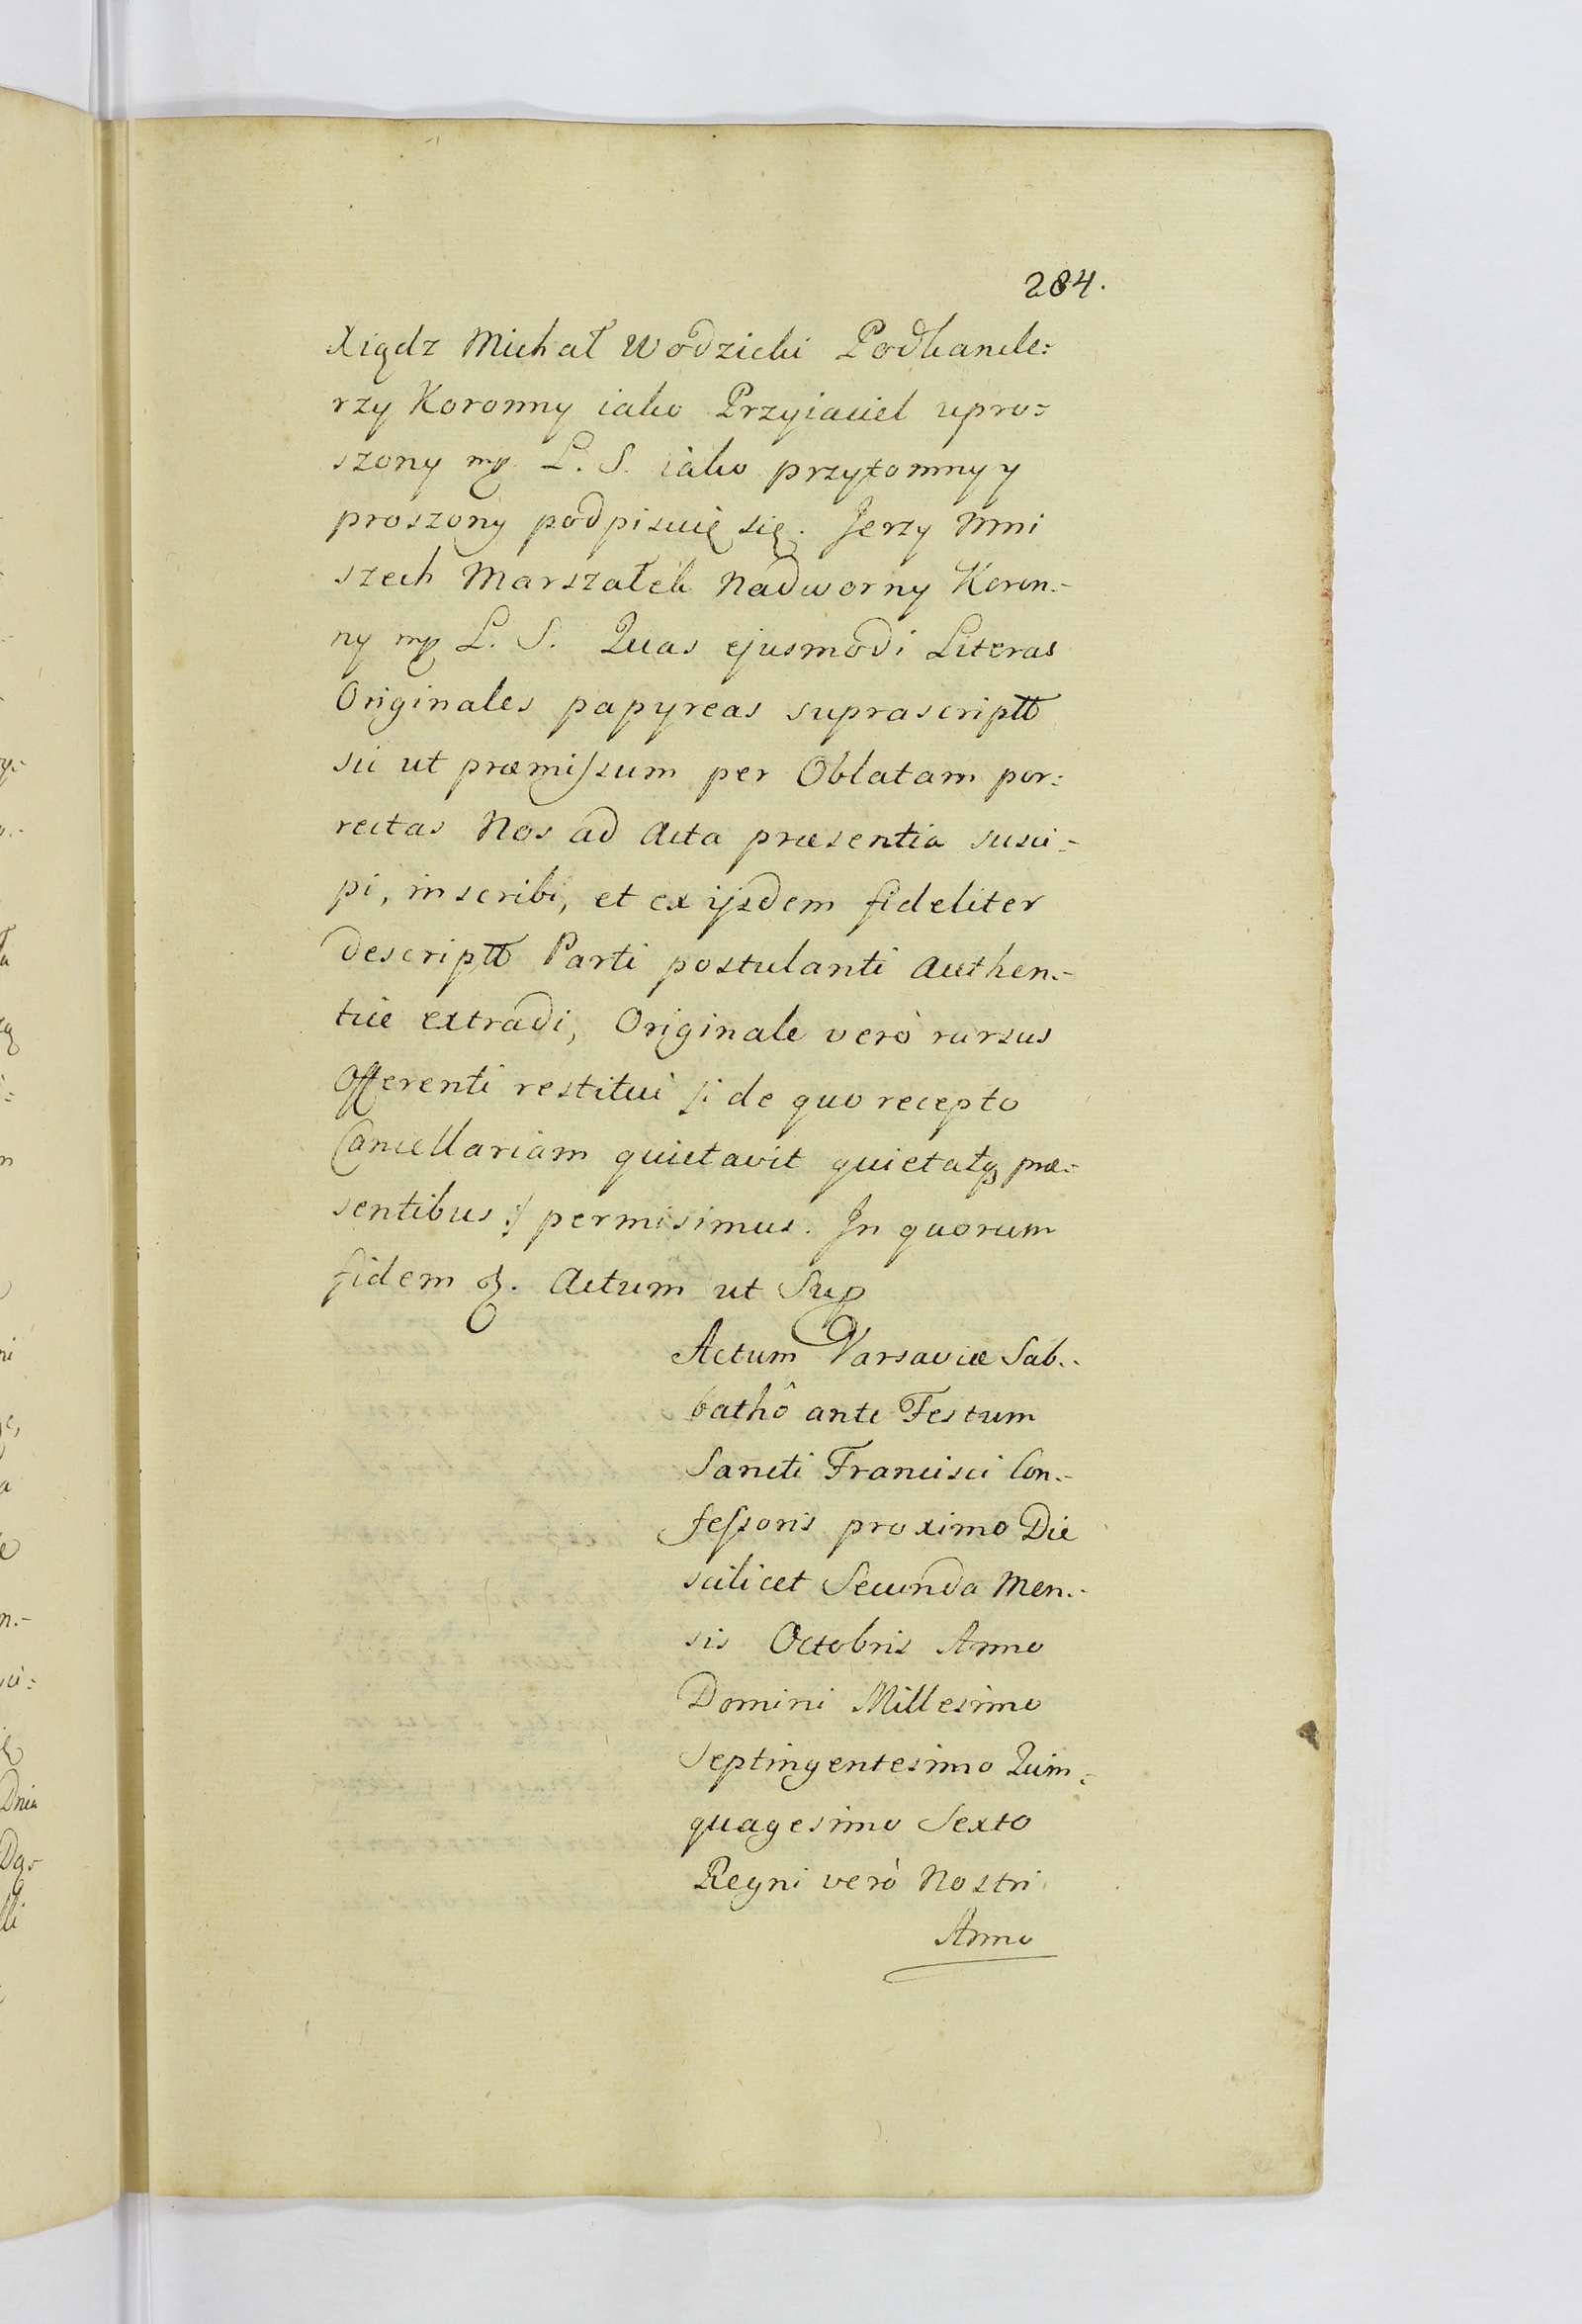 284.
Xiądz Michał Wodzicki Podkancle:
rzy Koronny iako Przyiaciel upro:
szony mp. L. S. iako przytomny y
proszony podpisuię się. Jerzy Mni
szech Marszałek Nadworny Koron.-
ny mp L. S. Quas ejusmodi Literas
Originales papyreas suprascriptt
sic ut præmissum per Oblatam por:
rectas Nos ad Acta præsentia susci:
pi, inscribi, et ex ijsdem fideliter
descriptt Parti postulanti Authen.-
tice extradi, Originale verò rursus
Offerenti restitui /: de quo recepto
Cancellariam quietavit quietatq præ.-
sentibus :/ permisimus. In quorum
fidem &. Actum ut Sup
Actum Varsaviæ Sab.-
bathô ante Festum
Sancti Francisci Con.-
fessoris proximo Die
scilicet Secunda Men.-
sis Octobris Anno
Domini Millesimo
Septingentesimo Quin:
quagesimo Sexto
Regni verò Nostri
Anno